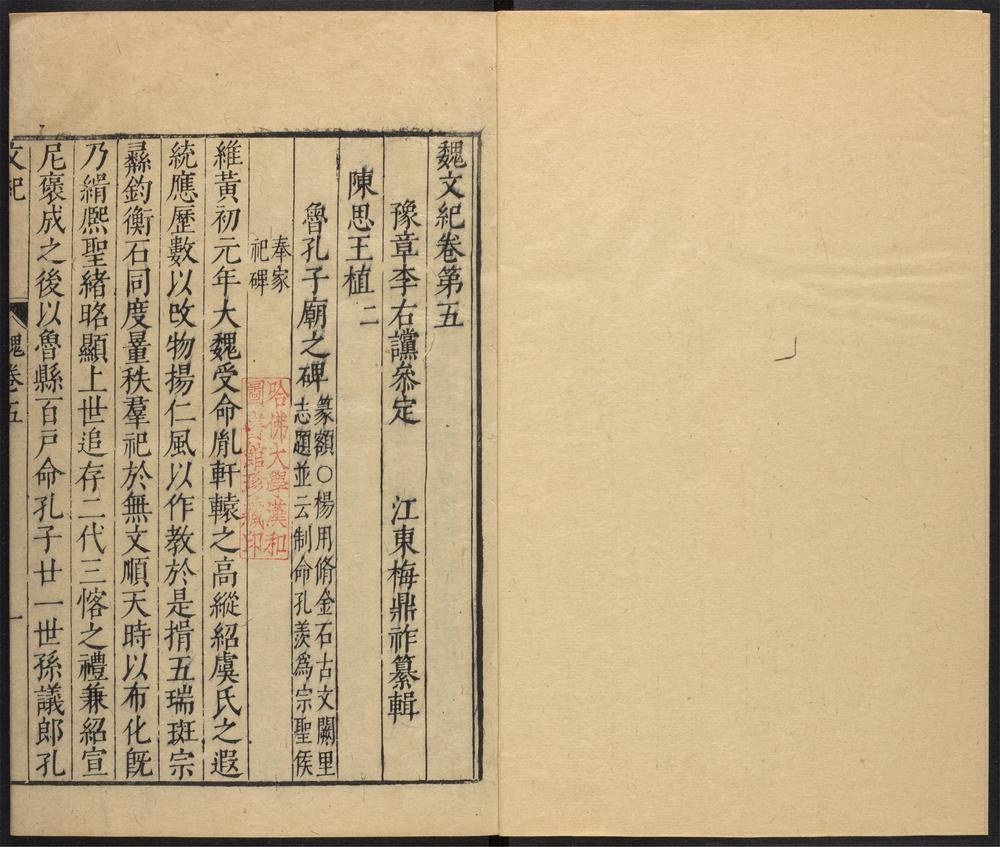 魏文紀卷第五
豫章李右讜叅定 江東梅鼎祚纂輯
陳思王植二
魯孔子廟之碑 篆額○楊用脩金石古文闕里
志題並云制命孔羨爲宗聖侯
奉家
祀碑
維黃初元年大魏受命胤軒轅之高縱紹虞氏之遐
統應歷數以改物揚仁風以作教於是揖五瑞斑宗
彞鈞衡石同度量秩羣祀於無文順天時以布化旣
乃緝熈聖緒昭顯上世追存二代三愘之禮兼紹宣
尼褒成之後以魯縣百戸命孔子廿一世孫議郎孔
文紀 魏卷五 一
哈佛大學漢和
圖書館珍藏印